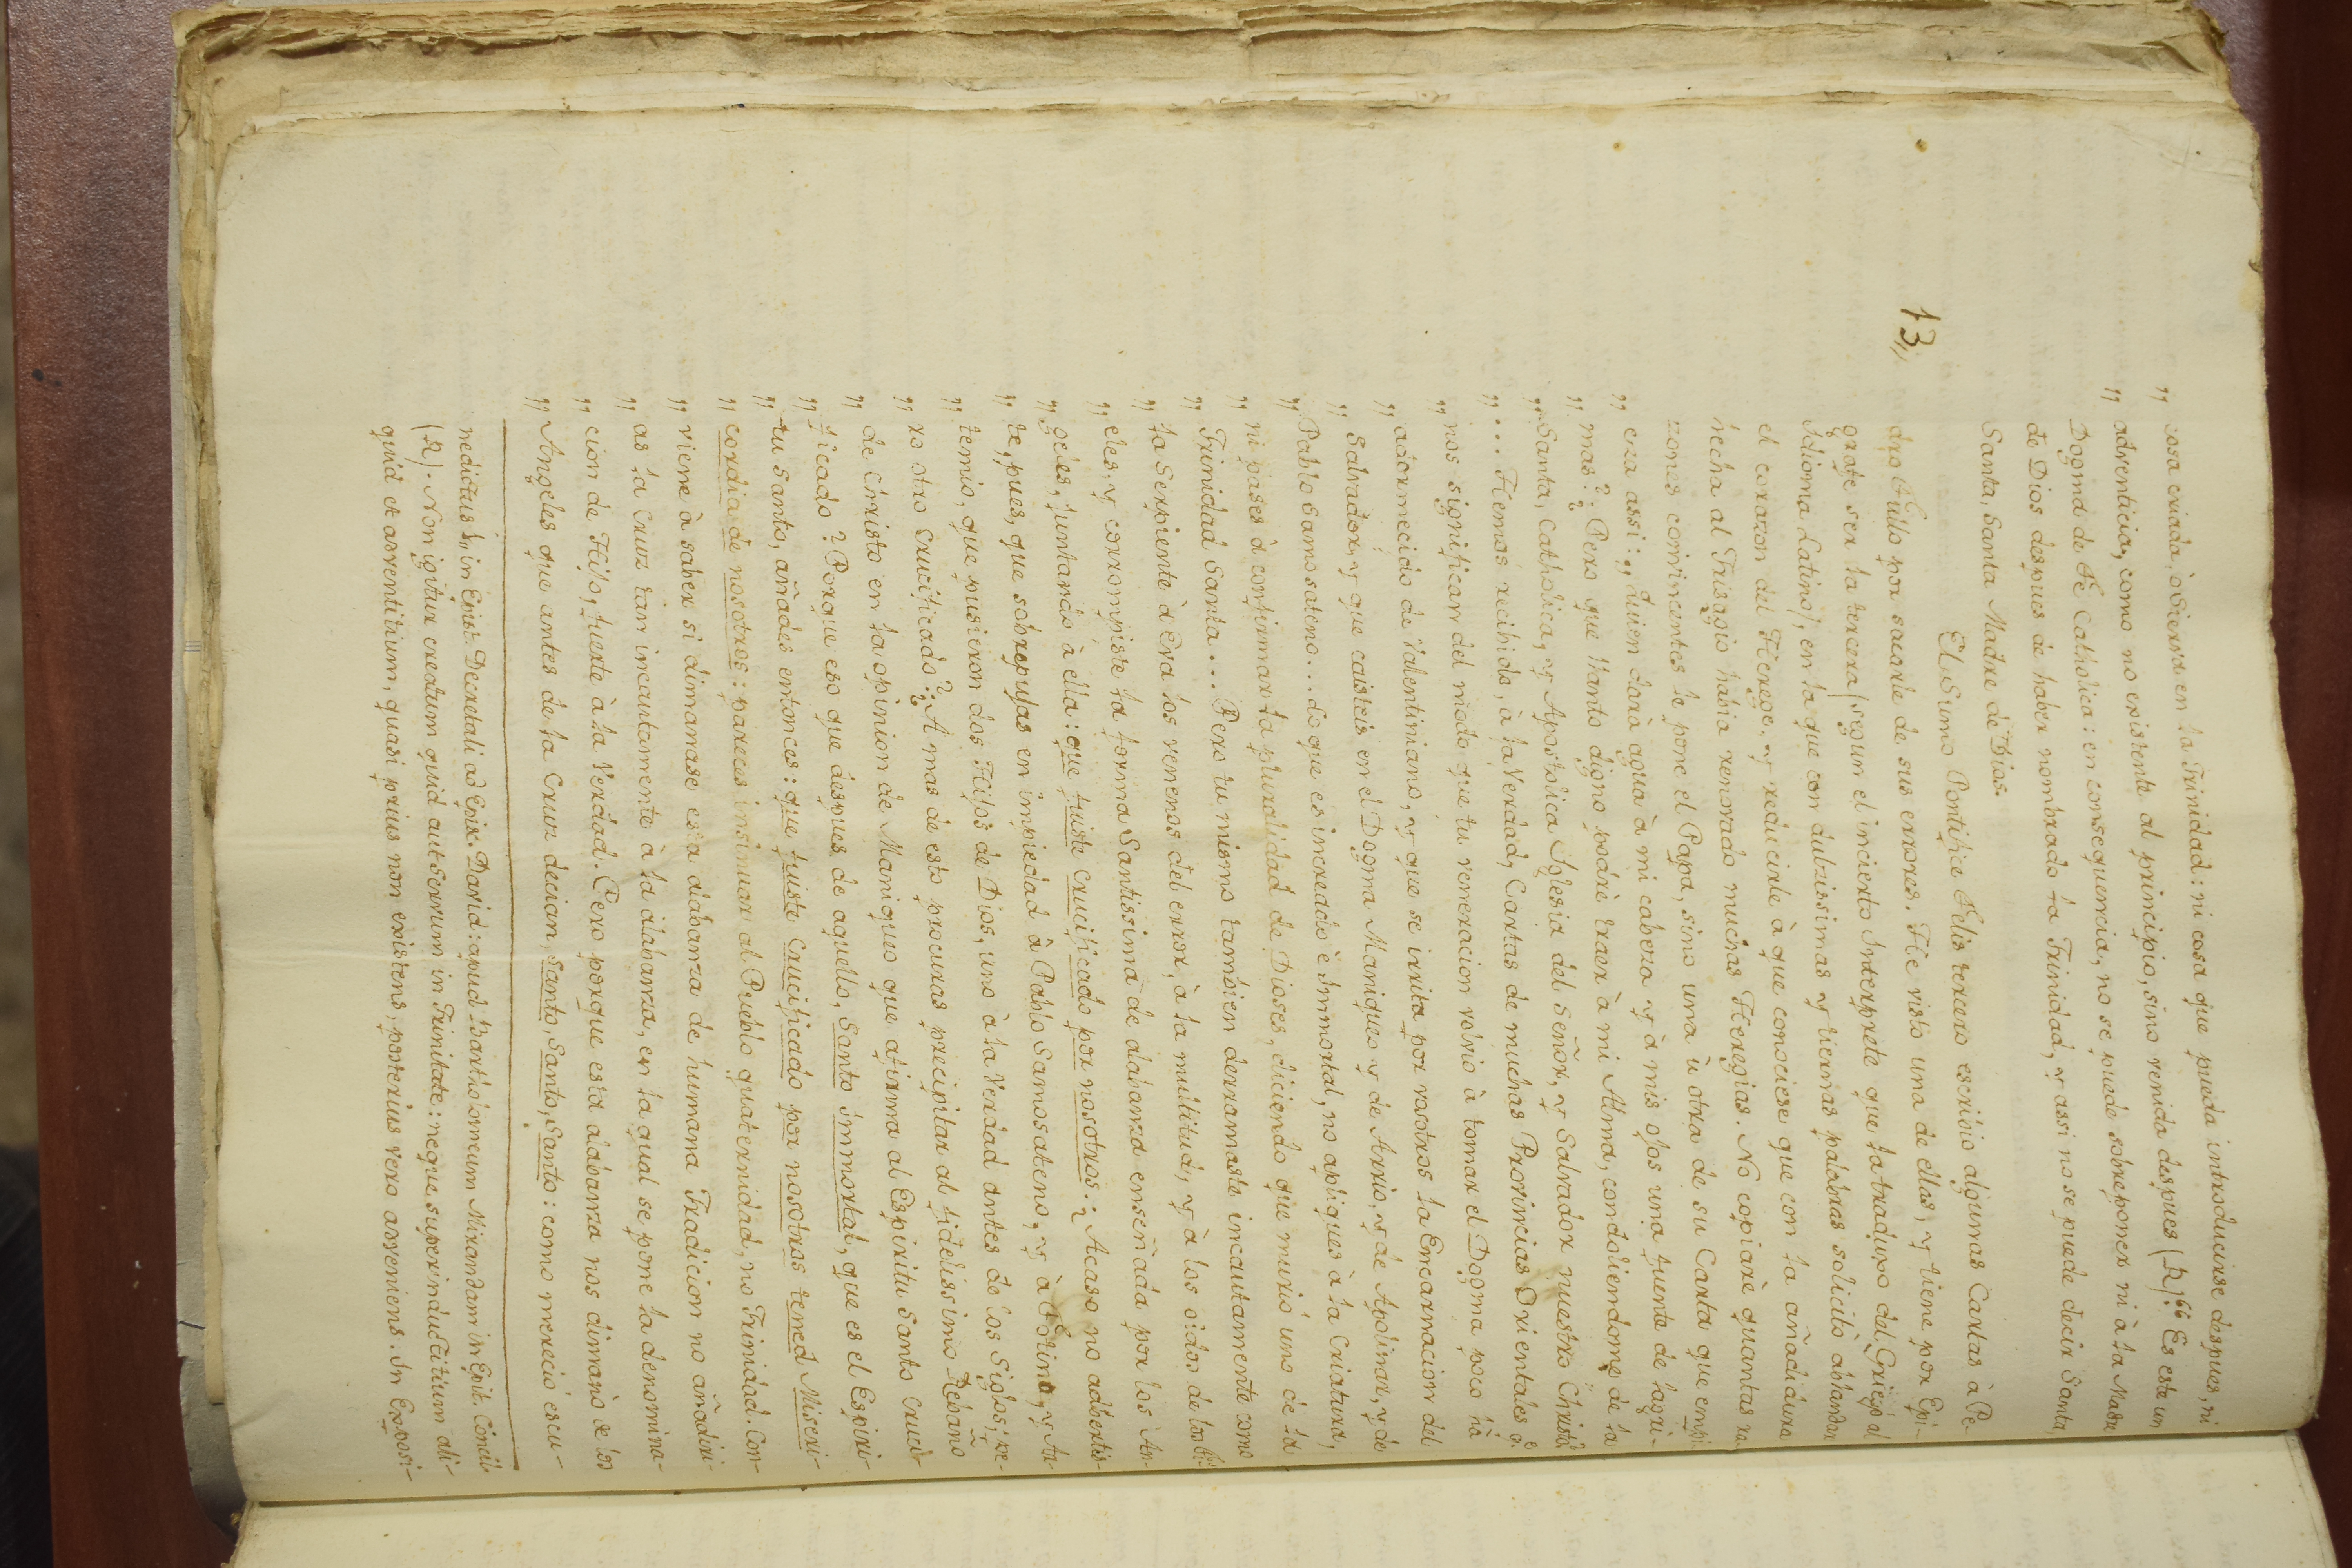 „ cosa criada, ò Sierva en la Trinidad: ni cosa que pueda introducirse despues, ni
„ adventicia, como no existente al principio, sino venida despues (R).“ Es este un
Dogma de Fè Catholica: en consequencia, no se puede sobreponer ni à la Madre
de Dios despues de haber nombrado la Trinidad, y assi no se puede decir Santa,
Santa, Santa Madre de Dios.
13„
El Sumo Pontifice Felis tercero escribio algunas Cartas à Pe-
dro Fullo por sacarle de sus errores. He visto una de ellas, y tiene por Epi-
grafe ser la tercera (segun el incierto Interprete que la traduxo del Griego al
Idioma Latino), en la que con dulzissimas y tiernas palabras solicitò ablandar
el corazon del Herege, y reducirle à que conociese que con la añadidura
hecha al Trisagio habia renovado muchas Heregias. No copiarè quantas ra-
zones convincentes le pone el Papa, sino una ù otra de su Carta que empi-
„ eza assi: „ Quien darà agua à mi cabeza y à mis ojos una fuente de lagri-
„ mas? Pero que llanto digno podrè traer à mi Alma, condoliendome de la
„ Santa, Catholica, y Apostolica Iglesia del Señor, y Salvador nuestro Christo?
„ ... Hemos recibido, à la Verdad, Cartas de muchas Provincias Orientales q.e
„ nos significan del modo que tu veneracion volvio à tomar el Dogma poco hà
„ adormecido de Valentiniano, y que se irrita por vosotros la Encarnacion del
„ Salvador, y que caisteis en el Dogma Maniqueo y de Arrio, y de Apolinar, y de
„ Pablo Samosateno... Lo que es increado è Immortal, no apliques à la Criatura,
„ ni pases à confirmar la pluralidad de Dioses, diciendo que muriò uno de la
„ Trinidad Santa... Pero tu mismo tambien derramaste incautamente como
„ la Serpiente à Eva los venenos del error, à la multitud, y à los oidos de los fi-
„ eles, y corrompiste la forma Santissima de alabanza enseñada por los An-
„ geles, juntando à ella: que fuiste Crucificado por nosotros: Acaso no adbertis-
„ te, pues, que sobrepujas en impiedad à Pablo Samosateno, y à Fotino, y Ar-
„ temio, que pusieron dos Hijos de Dios, uno à la Verdad antes de los Siglos, pe-
„ ro otro Crucificado? A mas de esto procuras precipitar al fidelissimo Rebaño
„ de Christo en la opinion de Maniqueo que afirma al Espiritu Santo Cruci-
„ ficado? Porque eso que despues de aquello, Santo immortal, que es el Espiri-
„ tu Santo, añades entonces: que fuiste Crucificado por nosotros tened Miseri-
„ cordia de nosotros: pareces insinuar al Pueblo quaternidad, no Trinidad. Con-
„ viene à saber si dimanase esa alabanza de humana Tradicion no añadiri-
„ as la Cruz tan incautamente à la alabanza, en la qual se pone la denomina-
„ cion de Hijo, fuerte à la Verdad. Pero porque esta alabanza nos dimanò de los
„ Angeles que antes de la Cruz decian Santo, Santo, Santo: como mereciò escu-
nedictus 1„ in Epist. Decretali ad Epis. David: apud Bartholomeum Mirandam in Epit. Concil.
(R). Non igitur creatum quid aut Servum in Trinitate: neque superinductitium ali-
quid et adventitium, quasi prius non existens, posterius vero adveniens. In Exposi-